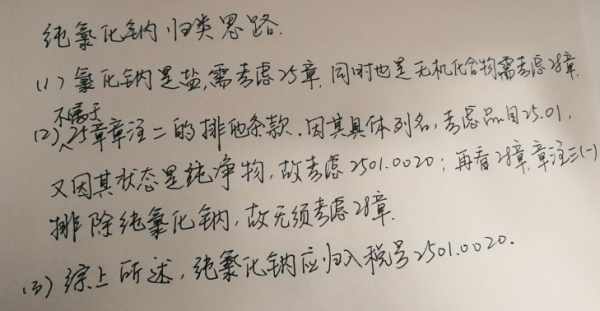 纯氯化钠归类思路.
(1) 氯化钠是盐,需考虑25章.同时也是无机化合物需考虑28章.
不属于
(2) 25章章注二的排他条款.因其具体列名,考虑品目25.01,
又因其状态是纯净物,故考虑2501.0020;再看28章,章注三(一)
排除纯氯化钠,故无须考虑28章.
(3) 综上所述,纯氯化钠应归入税号2501.0020.